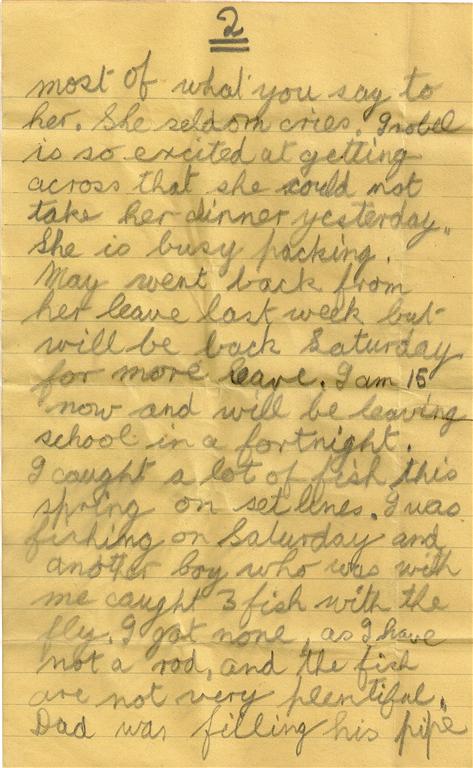 2
most of what you say to
her. She seldom cries. Isobel
is so excited at getting
across that she could not
take her dinner yesterday.
She is busy packing.
May went back from
her leave last week but
will be back Saturday
for more leave. I am 15
now and will be leaving
school in a fortnight.
I caught a lot of fish this
spring on set lines. I was
fishing on Saturday and
another boy who was with
me caught 3 fish with the
fly. I got none, as I have
not a rod, and the fish
are not very plentiful.
Dad was filling his pipe